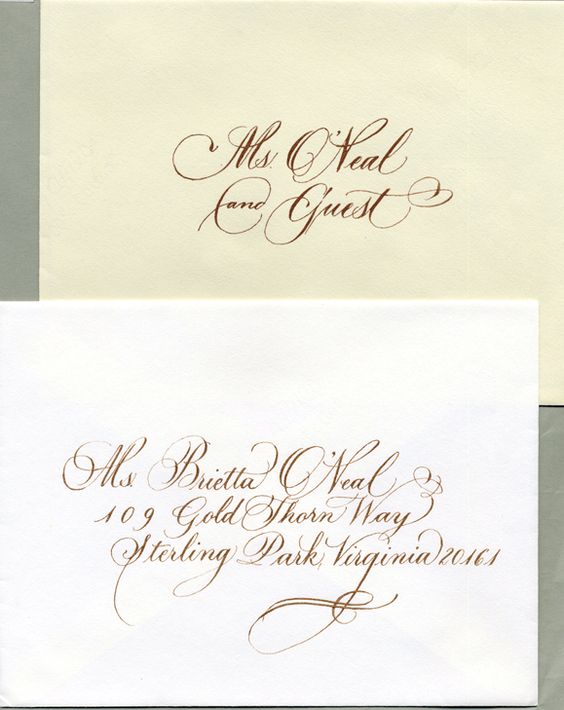 Ms. O'Neal
and Guest
Ms. Brietta O'Neal
109 Gold Thorn Way
Sterling Park, Virginia 20161